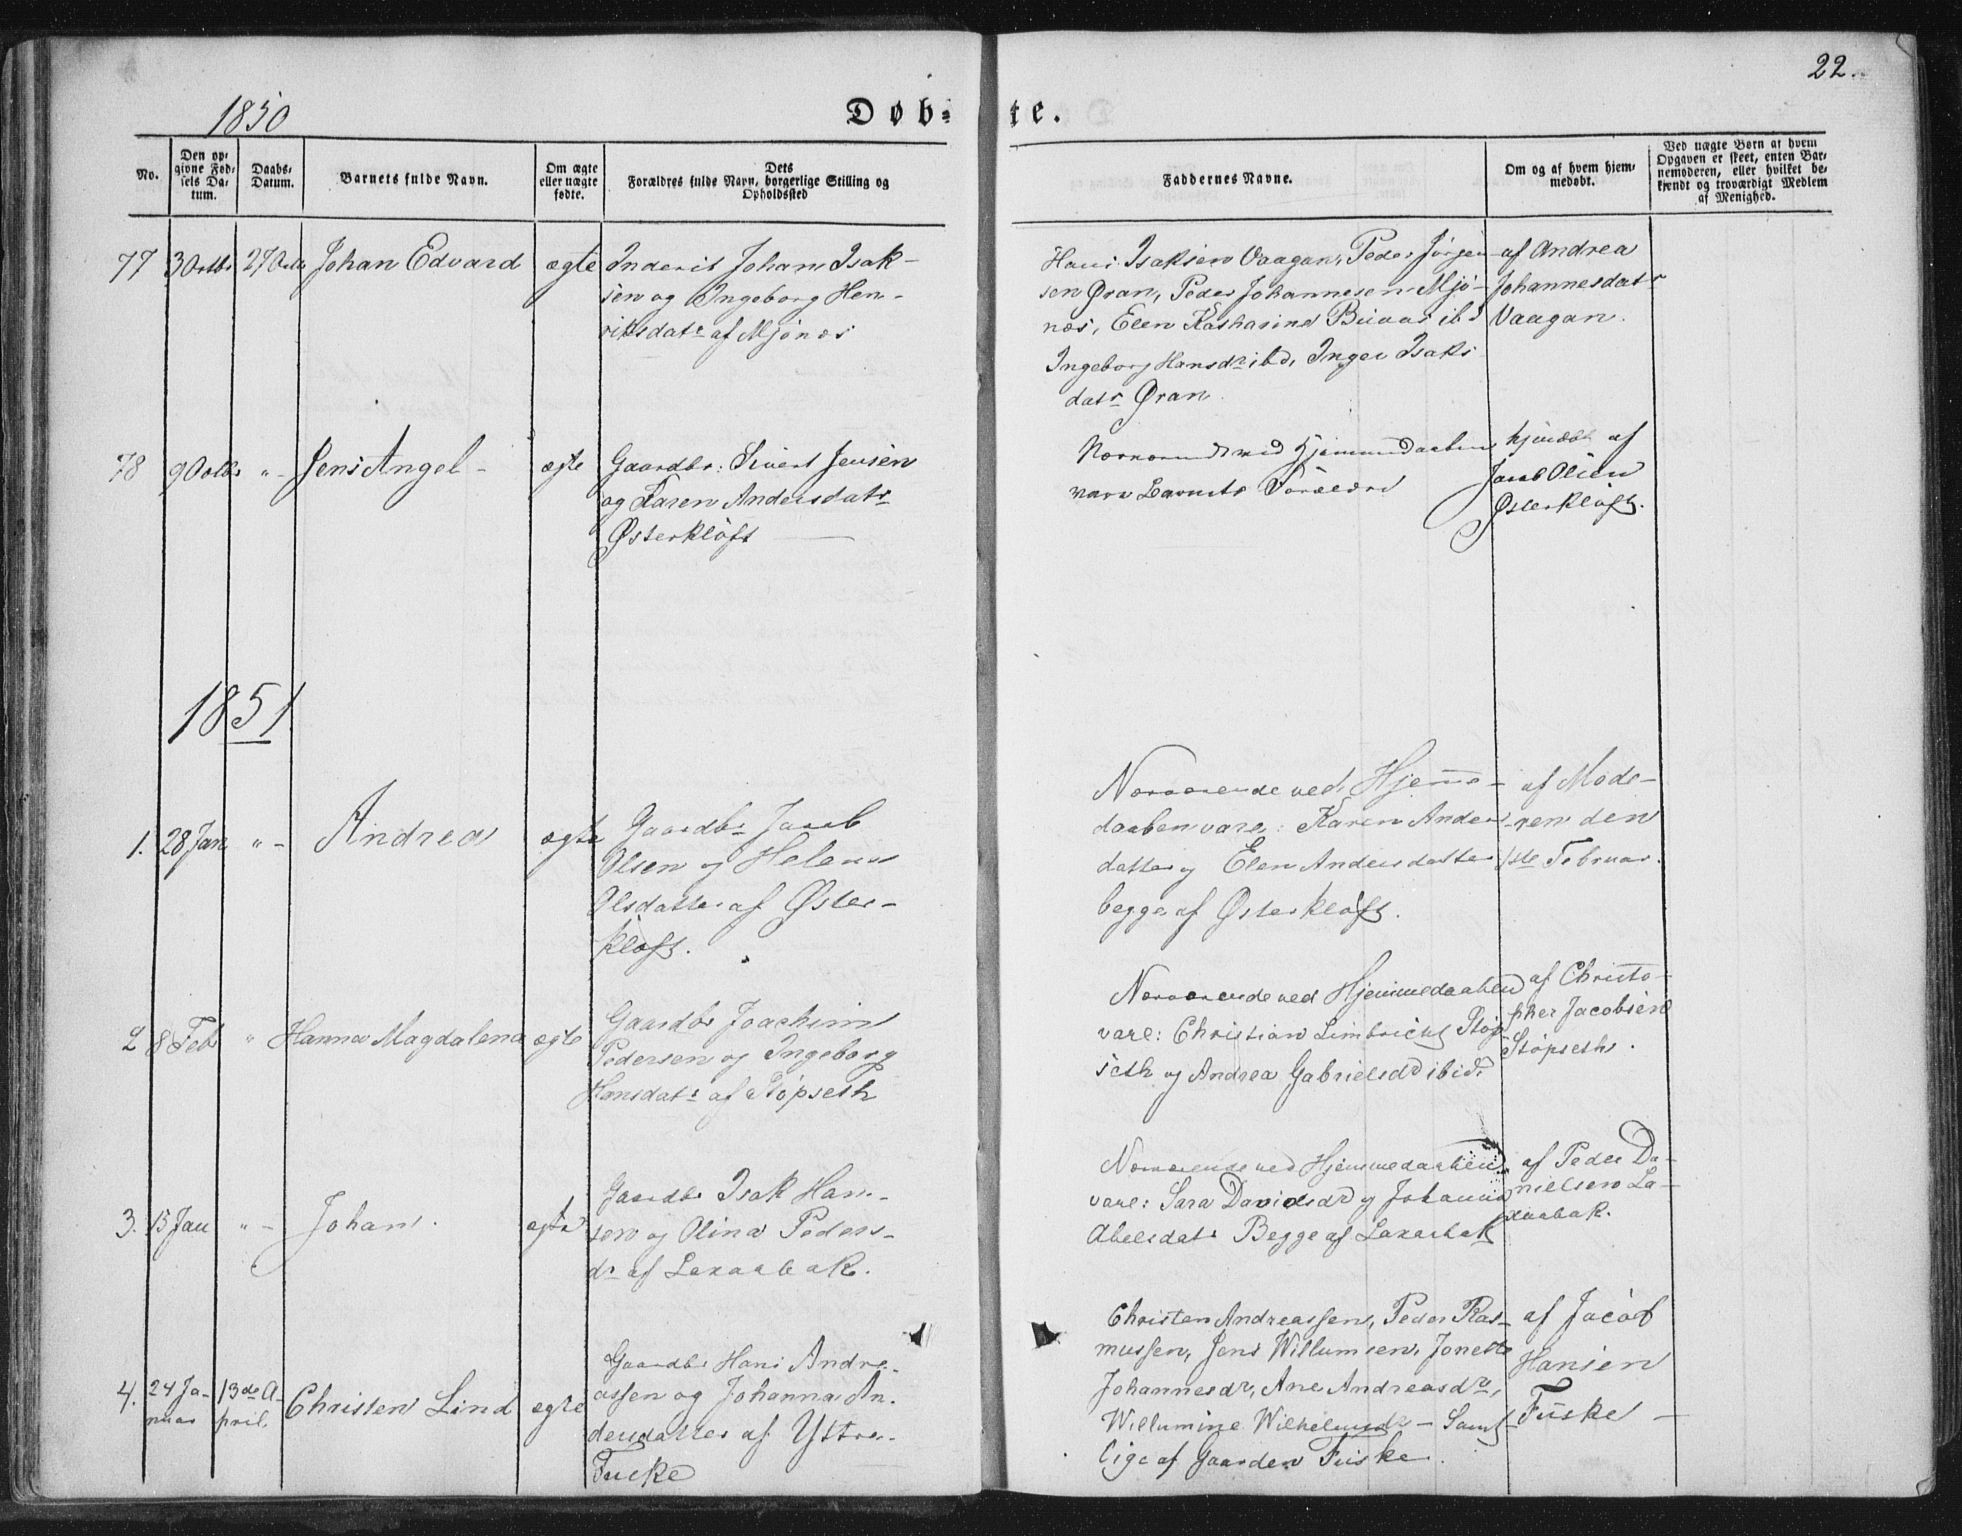 22.
1850
Døb- te.
No.
Den op-
givne Fød-
sels Da-
tum.
Daabs-
Datum.
Barnets fulde Navn.
Om ægte
eller uægte
fødte.
Dets
Forældres fulde Navn, borgerlige Stilling og
Opholdssted
Faddernes Navne.
Om og af hvem hjem-
medøbt.
Ved uægte Børn at hvem
Opgaven er skeet, enten Bar-
nemoderen, eller hvilket be-
kjendt og troværdigt Medlem
af Menighed.
77 3 Octbr 27 Octb Johan Edvard ægte
Inderst Johan Isak-
sen og Ingeborg Hen-
riksdatr af Mjønes
Hans Isaksen Vaagan, Peder Jørgen-
sen Øran, Peder Johannesen Mjø-
næs, Elen Katharina ibd
Ingeborg Hansdr ibd, Inger Isaks
datr Øran
af Andrea
Johannesdatr
Vaagan.
78 9 Octbr " - Jens Angel - ægte
Gaardbr: Sivert Jensen
og Karen Andersdatr
Østerkløft
Nærværende ved Hjemmedaaben
vare Barnets Forældre
hjmdøbt af
Jacob Olsen
Østerkløft.
1851
1. 28 Jan " - Andrea ægte
Gaardbr Jacob
Olsen og Helena
Olsdatter af Øster-
kløft.
Nærværende ved Hjemme-
daaben vare: Karen Anders
datter og Elen Andersdatter
begge af Østerkløft.
af Mode-
ren den
1ste Februar.
2 8 Feb " Hanna Magdalena ægte
Gaardbr Joachim
Pedersen og Ingeborg
Hansdatr af Støpseth
Nærværende ved Hjemmedaaben
vare: Christian Limbricht Støp
seth og Andrea Gabrielsdr ibid.
af Christo-
pher Jacobsen
Støpseth.
3. 15 Jan " - Johan. ægte
Gaardbr Isak Han-
sen og Olina Peders-
dr af Laxaabak.
Nærværende ved Hjemmedaaben
vare: Sara Davidsdr og Johanna
Abelsdatr Begge af Laxaabak
af Peder Da-
nielsen La-
xaabak.
4. 24 Ja-
nuar
13de A-
pril.
Christen Lind ægte
Gaardbr Hans Andre-
assen og Johanna An-
dersdatter af Ystre-
Fuske
Christen Andreassen, Peder Ras-
mussen, Jens Willumsen, Jonette
Johannesdr, Ane Andreasdr,
Willumine Wilhelmsdr - Samt-
lige af Gaarden Fuske.
af Jacob
Hansen
Fuske -